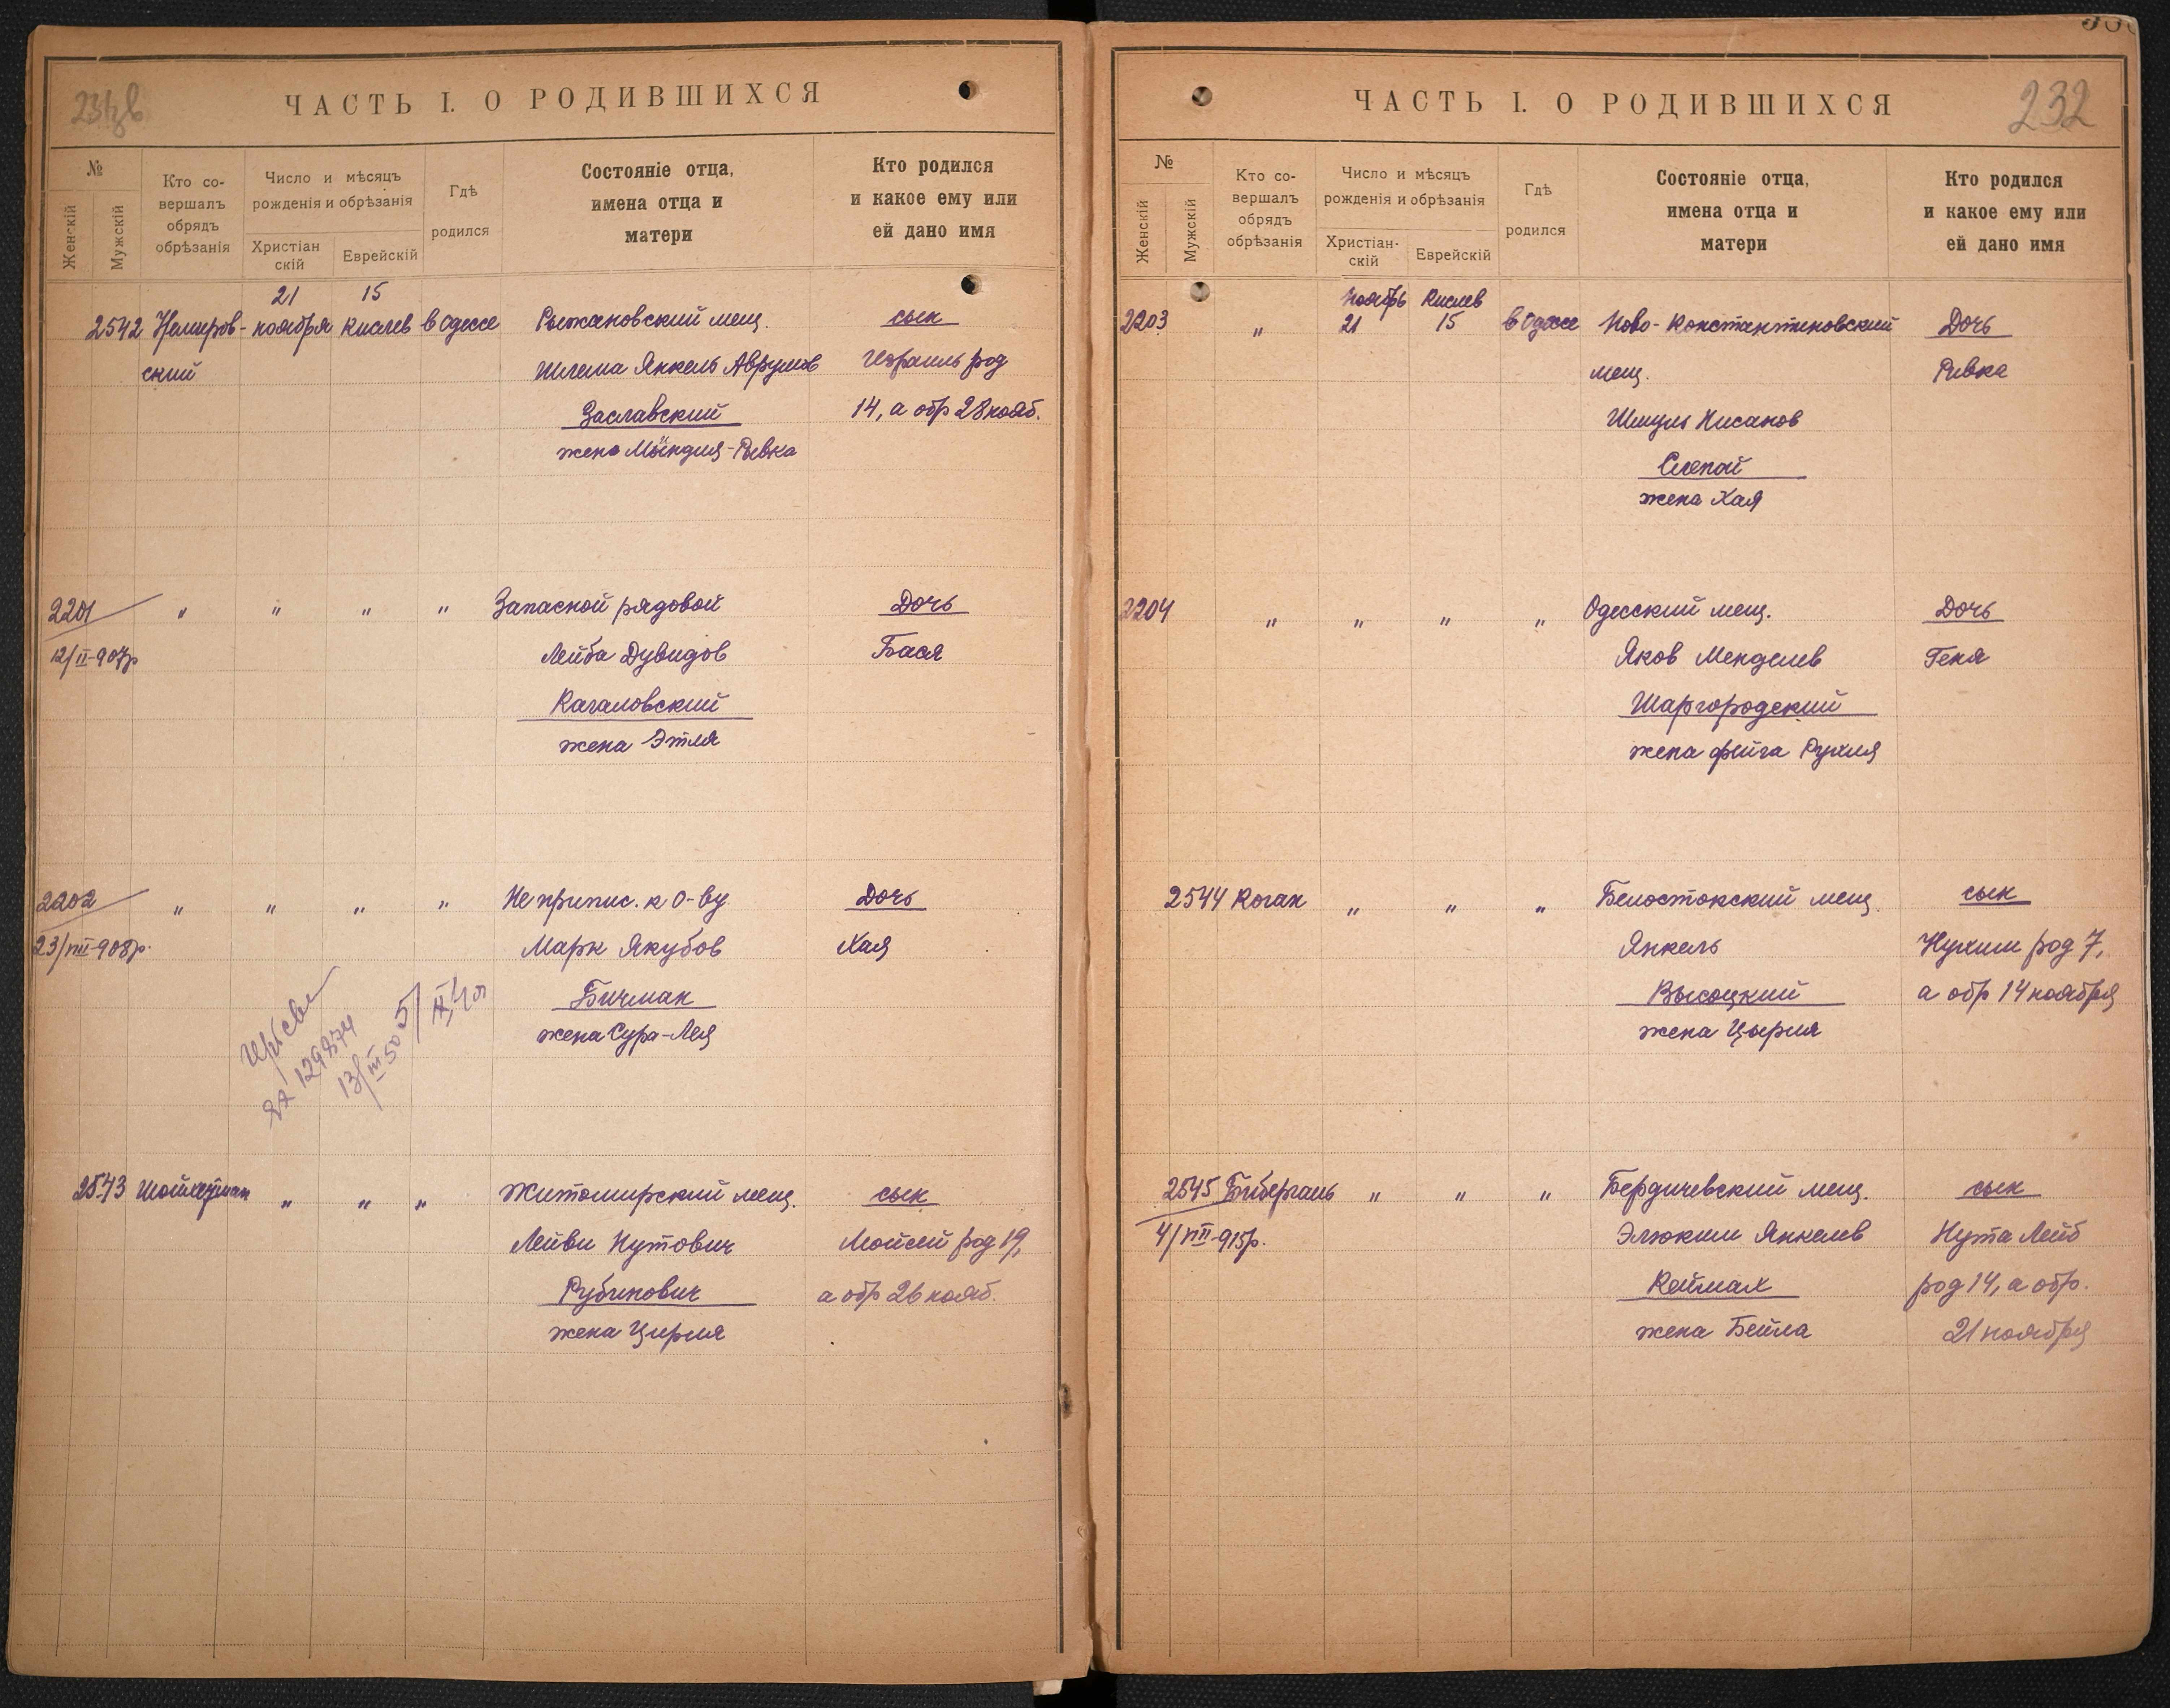 ЧАСТЬ I. О РОДИВШИХСЯ
№
Женскій
Мужскій
Кто со-
вершалъ
обрядъ
обрѣзанія
Число и мѣсяцъ
рожденія и обрѣзанія
Христіан
скій
Еврейскій
Гдѣ
родился
Состояніе отца,
имена отца и
матери
Кто родился
и какое ему или
ей дано имя
21 15
2542 Немиров- ноября кислев в Одессе Рыжановский мещ. сын
ский Шлема Янкель Аврумов Израиль род
Заславский 14, а обр 28 нояб.
жена Мындля-Ривка
2201 " " " " Запасной рядовой Дочь
12/II-907р Лейба Дувидов Бася
Кагаловский
жена Этля
2202 " " " " Не припис. к О-ву Дочь
23/VIII-908р. Марк Якубов Хая
Бичман
жена Сура-Лея
129874
13/III 50
2543 Шойхетман " " " Житомирский мещ. сын
Лейви Нутович Мойсей род 19,
Рубинович а обр 26 нояб.
жена Цирля
232
ЧАСТЬ I. О РОДИВШИХСЯ
№
Женскій
Мужскій
Кто со-
вершалъ
обрядъ
обрѣзанія
Число и мѣсяцъ
рожденія и обрѣзанія
Христіан-
скій
Еврейскій
Гдѣ
родился
Состояніе отца,
имена отца и
матери
Кто родился
и какое ему или
ей дано имя
Ноябрь Кислев
2203 " 21 15 в Одессе Ново-Константиновский Дочь
мещ. Ривка
Шмуль Нисанов
Слепой
жена Хая
2204 " " " " Одесский мещ. Дочь
Яков Менделев Геня
Шаргородский
жена Фейга Рухля
2544 Коган " " " Белостокский мещ. сын
Янкель Нухим род 7,
Высоцкий а обр 14 ноября
жена Цырля
2545 Бибергаль " " " Бердичевский мещ. сын
4/VIII-915р. Элюким Янкелев Нута Лейб
Кеймах род 14, а обр.
жена Бейла 21 ноября